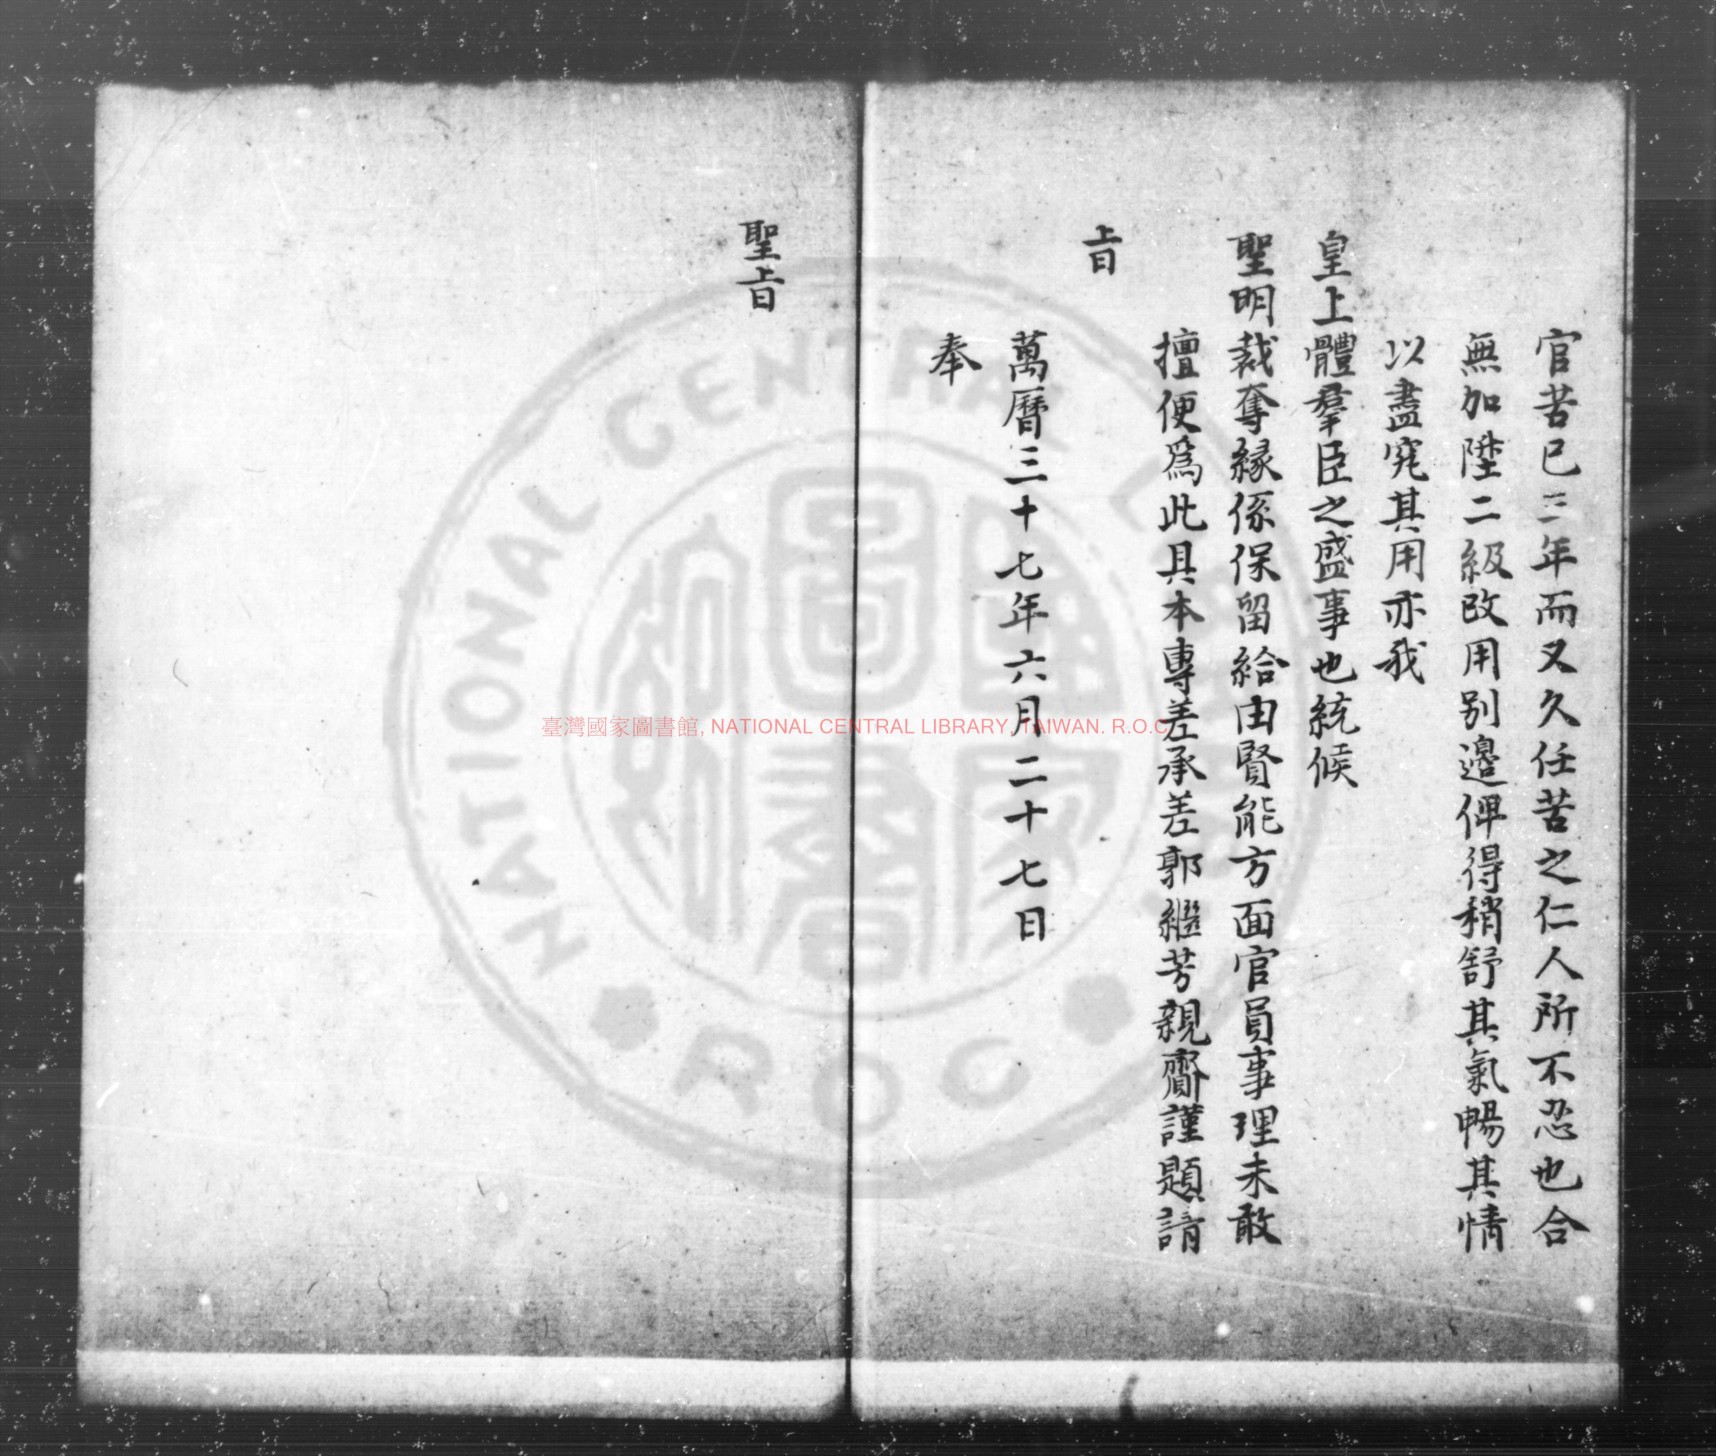 官苦已三年而又久任苦之仁人所不忍也合
無加陞二級改用別邊俾得稍舒其氣暢其情
以盡究其用亦我
皇上體羣臣之盛事也統候
聖明裁奪緣係保留給由賢能方面官員事理未敢
擅便為此具本專差承差郭繼芳親齎謹題請
旨
萬曆三十七年六月二十七日
奉
聖旨
臺灣國家圖書館, NATIONAL CENTRAL LIBRARY, TAIWAN. R.O.C
NATIONAL CENTRAL LIBRARY
ROC
國家圖書館